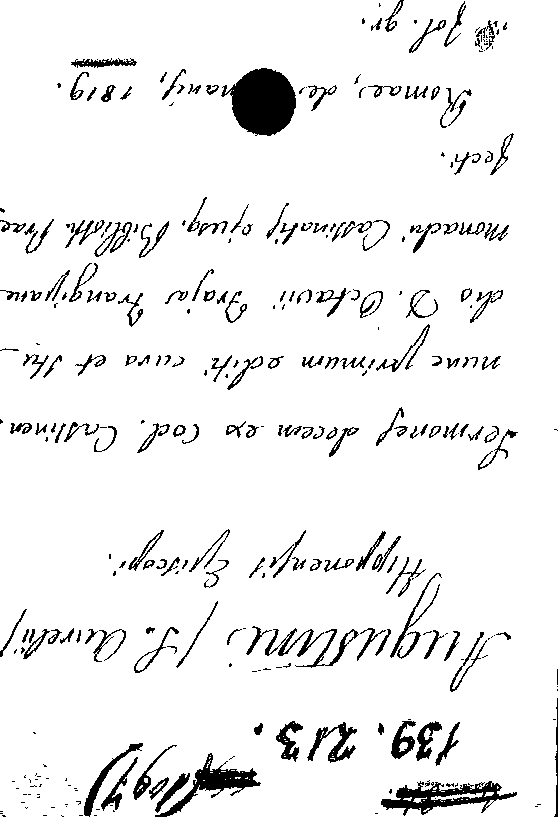 139.213.
Augustini /S. Aurelii/
Hipponensis Episcopi.
Sermones decem ex Cod. Cassinen.
nunc primum editi cura et stu-
dio D. Octavii Fraja Frangipane
monachi Cassinatis ejusq. Biblioth. Prae
fecti.
Romae, de 1819.
Fol. gr.